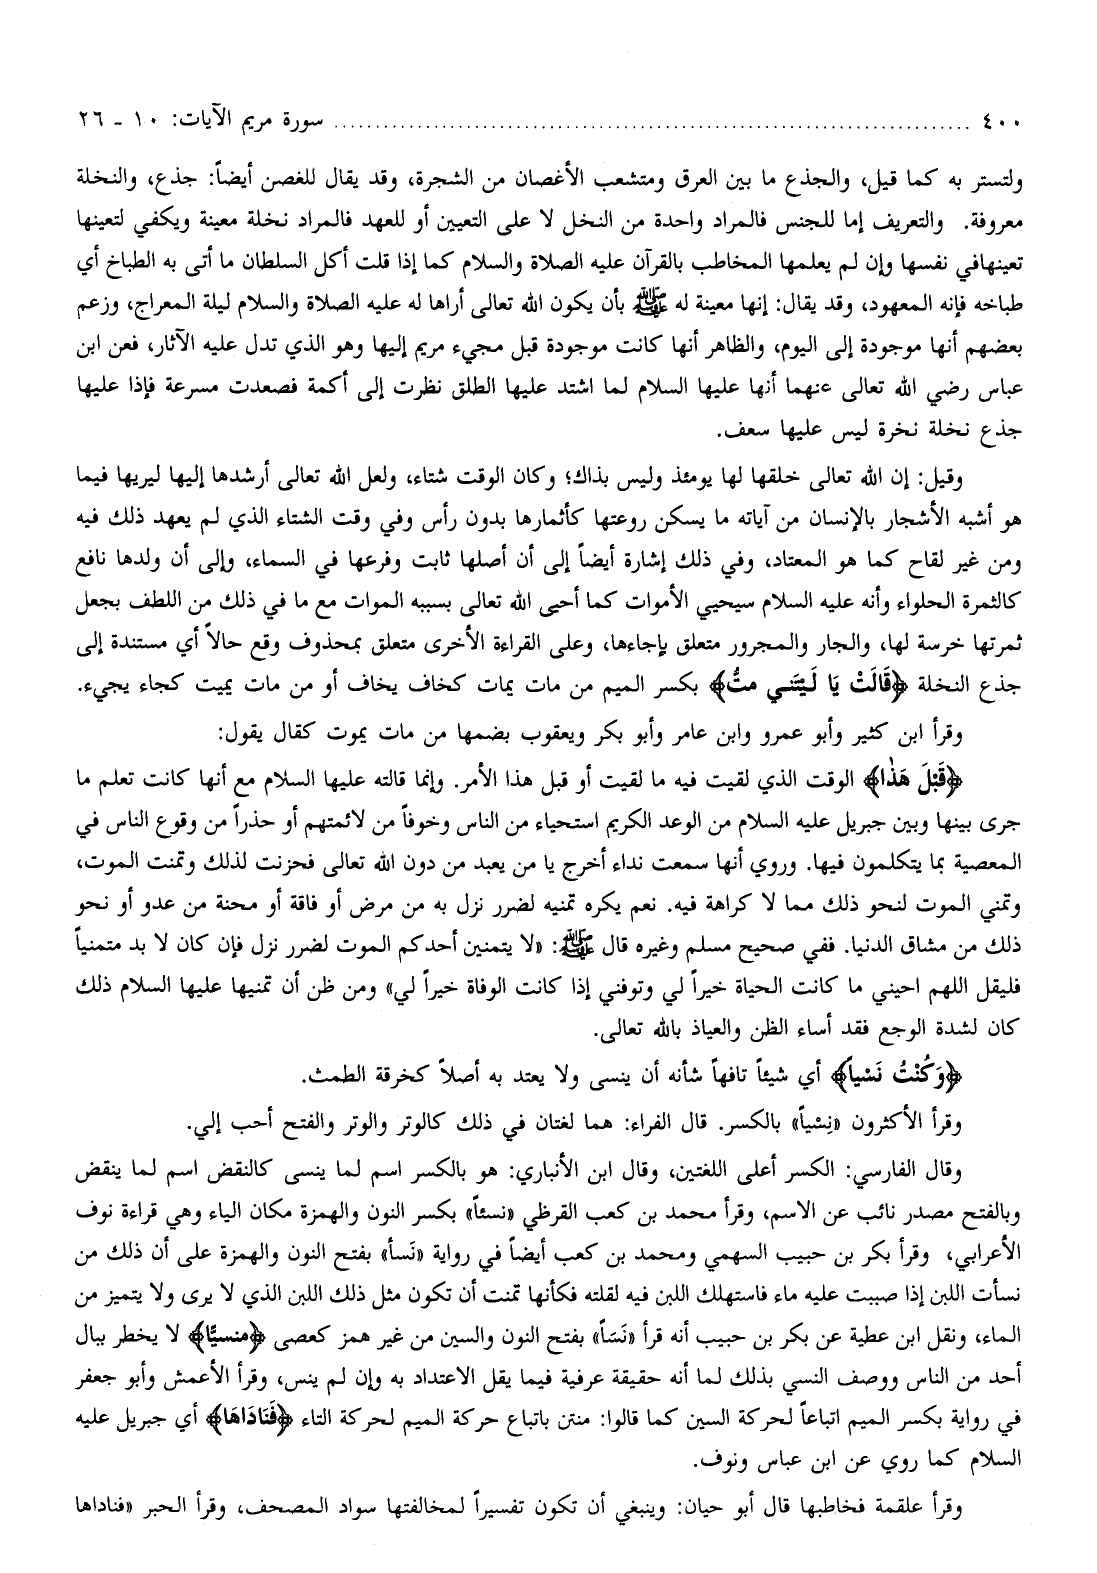 ٤٠٠ ........................................................................ سورة مريم الآيات: ١٠ ـ ٢٦
ولتستر به كما قيل، والجذع ما بين العرق ومتشعب الأغصان من الشجرة، وقد يقال للغصن أيضاً: جذع، والنخلة
معروفة. والتعريف إما للجنس فالمراد واحدة من النخل لا على التعيين أو للعهد فالمراد نخلة معينة ويكفي لتعينها
تعينهافي نفسها وإن لم يعلمها المخاطب بالقرآن عليه الصلاة والسلام كما إذا قلت أكل السلطان ما أتى به الطباخ أي
طباخه فإنه المعهود، وقد يقال: إنها معينة له ﷺ بأن يكون الله تعالى أراها له عليه الصلاة والسلام ليلة المعراج، وزعم
بعضهم أنها موجودة إلى اليوم، والظاهر أنها كانت موجودة قبل مجيء مريم إليها وهو الذي تدل عليه الآثار، فعن ابن
عباس رضي الله تعالى عنهما أنها عليها السلام لما اشتد عليها الطلق نظرت إلى أكمة فصعدت مسرعة فإذا عليها
جذع نخلة نخرة ليس عليها سعف.
وقيل: إن الله تعالى خلقها لها يومئذ وليس بذاك؛ وكان الوقت شتاء، ولعل الله تعالى أرشدها إليها ليريها فيما
هو أشبه الأشجار بالإنسان من آياته ما يسكن روعتها كأثمارها بدون رأس وفي وقت الشتاء الذي لم يعهد ذلك فيه
ومن غير لقاح كما هو المعتاد، وفي ذلك إشارة أيضاً إلى أن أصلها ثابت وفرعها في السماء، وإلى أن ولدها نافع
كالثمرة الحلواء وأنه عليه السلام سيحيي الأموات كما أحيى الله تعالى بسببه الموات مع ما في ذلك من اللطف بجعل
ثمرتها خرسة لها، والجار والمجرور متعلق بإجاءها، وعلى القراءة الأخرى متعلق بمحذوف وقع حالاً أي مستندة إلى
جذع النخلة ﴿قَالَتْ يَا لَيْتَني متُّ﴾ بكسر الميم من مات يمات كخاف يخاف أو من مات يميت كجاء يجيء.
وقرأ ابن كثير وأبو عمرو وابن عامر وأبو بكر ويعقوب بضمها من مات يموت كقال يقول:
﴿قَبْلَ هَذَا﴾ الوقت الذي لقيت فيه ما لقيت أو قبل هذا الأمر. وإنما قالته عليها السلام مع أنها كانت تعلم ما
جرى بينها وبين جبريل عليه السلام من الوعد الكريم استحياء من الناس وخوفاً من لائمتهم أو حذراً من وقوع الناس في
المعصية بما يتكلمون فيها. وروي أنها سمعت نداء أخرج يا من يعبد من دون الله تعالى فحزنت لذلك وتمنت الموت،
وتمني الموت لنحو ذلك مما لا كراهة فيه. نعم يكره تمنيه لضرر نزل به من مرض أو فاقة أو محنة من عدو أو نحو
ذلك من مشاق الدنيا. ففي صحيح مسلم وغيره قال ﷺ: «لا يتمنين أحدكم الموت لضرر نزل فإن كان لا بد متمنياً
فليقل اللهم احيني ما كانت الحياة خيراً لي وتوفني إذا كانت الوفاة خيراً لي» ومن ظن أن تمنيها عليها السلام ذلك
كان لشدة الوجع فقد أساء الظن والعياذ بالله تعالى.
﴿وَكُنْتُ نَسْياً﴾ أي شيئاً تافهاً شأنه أن ينسى ولا يعتد به أصلاً كخرقة الطمث.
وقرأ الأكثرون «نِسْياً» بالكسر. قال الفراء: هما لغتان في ذلك كالوتر والوتر والفتح أحب إلي.
وقال الفارسي: الكسر أعلى اللغتين، وقال ابن الأنباري: هو بالكسر اسم لما ينسى كالنقض اسم لما ينقض
وبالفتح مصدر نائب عن الاسم، وقرأ محمد بن كعب القرظي «نسئاً» بكسر النون والهمزة مكان الياء وهي قراءة نوف
الأعرابي، وقرأ بكر بن حبيب السهمي ومحمد بن كعب أيضاً في رواية «نَسأ» بفتح النون والهمزة على أن ذلك من
نسأت اللبن إذا صببت عليه ماء فاستهلك اللبن فيه لقلته فكأنها تمنت أن تكون مثل ذلك اللبن الذي لا يرى ولا يتميز من
الماء، ونقل ابن عطية عن بكر بن حبيب أنه قرأ «نَسَاً» بفتح النون والسين من غير همز كعصى ﴿منسيًّا﴾ لا يخطر ببال
أحد من الناس ووصف النسي بذلك لما أنه حقيقة عرفية فيما يقل الاعتداد به وإن لم ينس، وقرأ الأعمش وأبو جعفر
في رواية بكسر الميم اتباعاً لحركة السين كما قالوا: منتن باتباع حركة الميم لحركة التاء ﴿فَنَادَاهَا﴾ أي جبريل عليه
السلام كما روي عن ابن عباس ونوف.
وقرأ علقمة فخاطبها قال أبو حيان: وينبغي أن تكون تفسيراً لمخالفتها سواد المصحف، وقرأ الحبر «فناداها